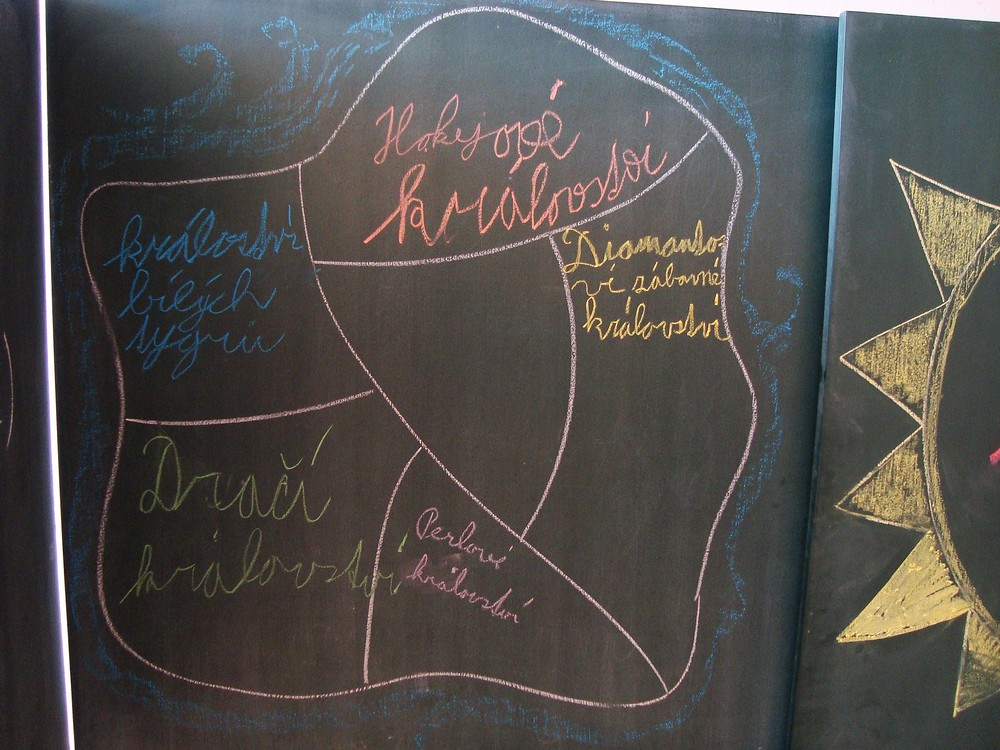 Hokejové
království
království
bílých
tygrů
Diamanto-
vé zábavné
království
Dračí
království
Perlové
království